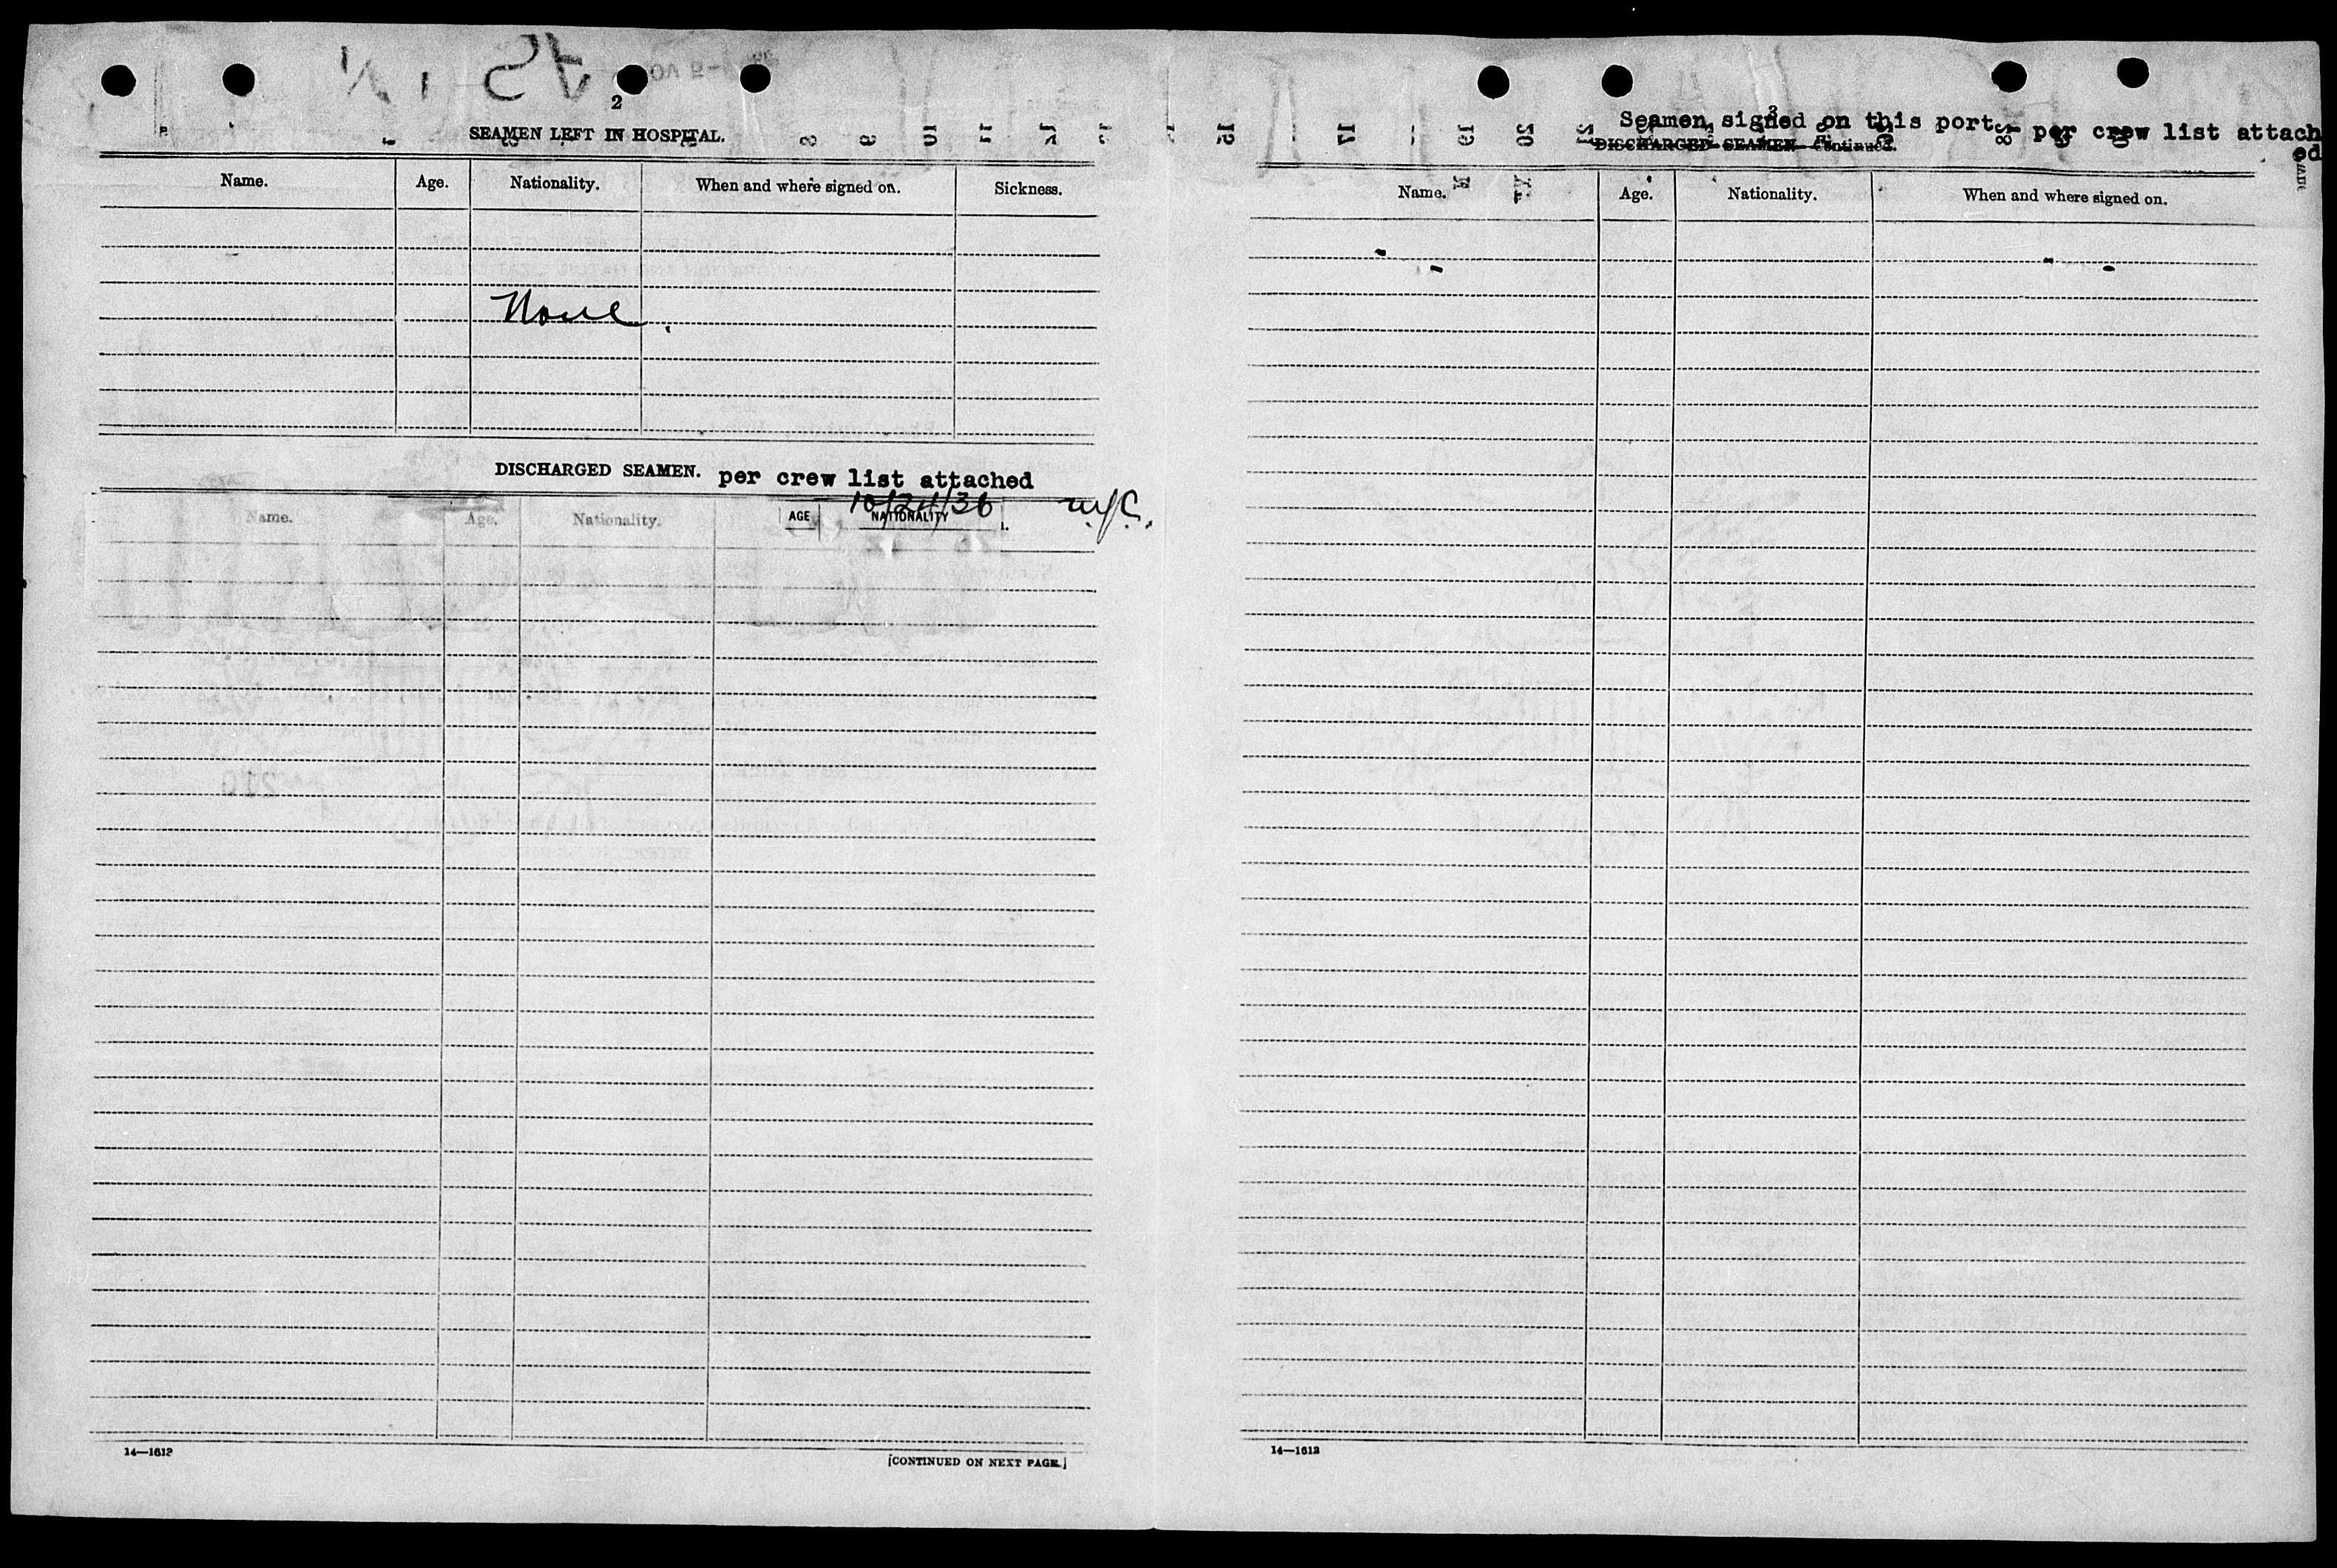 2
SEAMEN LEFT IN HOSPITAL.
Name. Age. Nationality. When and where signed on. Sickness.
None
DISCHARGED SEAMEN. per crew list attached
10/24/36 N.Y.C.
Name. Age. Nationality. AGE NATIONALITY
14—1612
[CONTINUED ON NEXT PAGE.]
3
Seamen signed on this port - per crew list attach
ed
DISCHARGED SEAMEN—Continued.
Name. Age. Nationality. When and where signed on.
14—1612